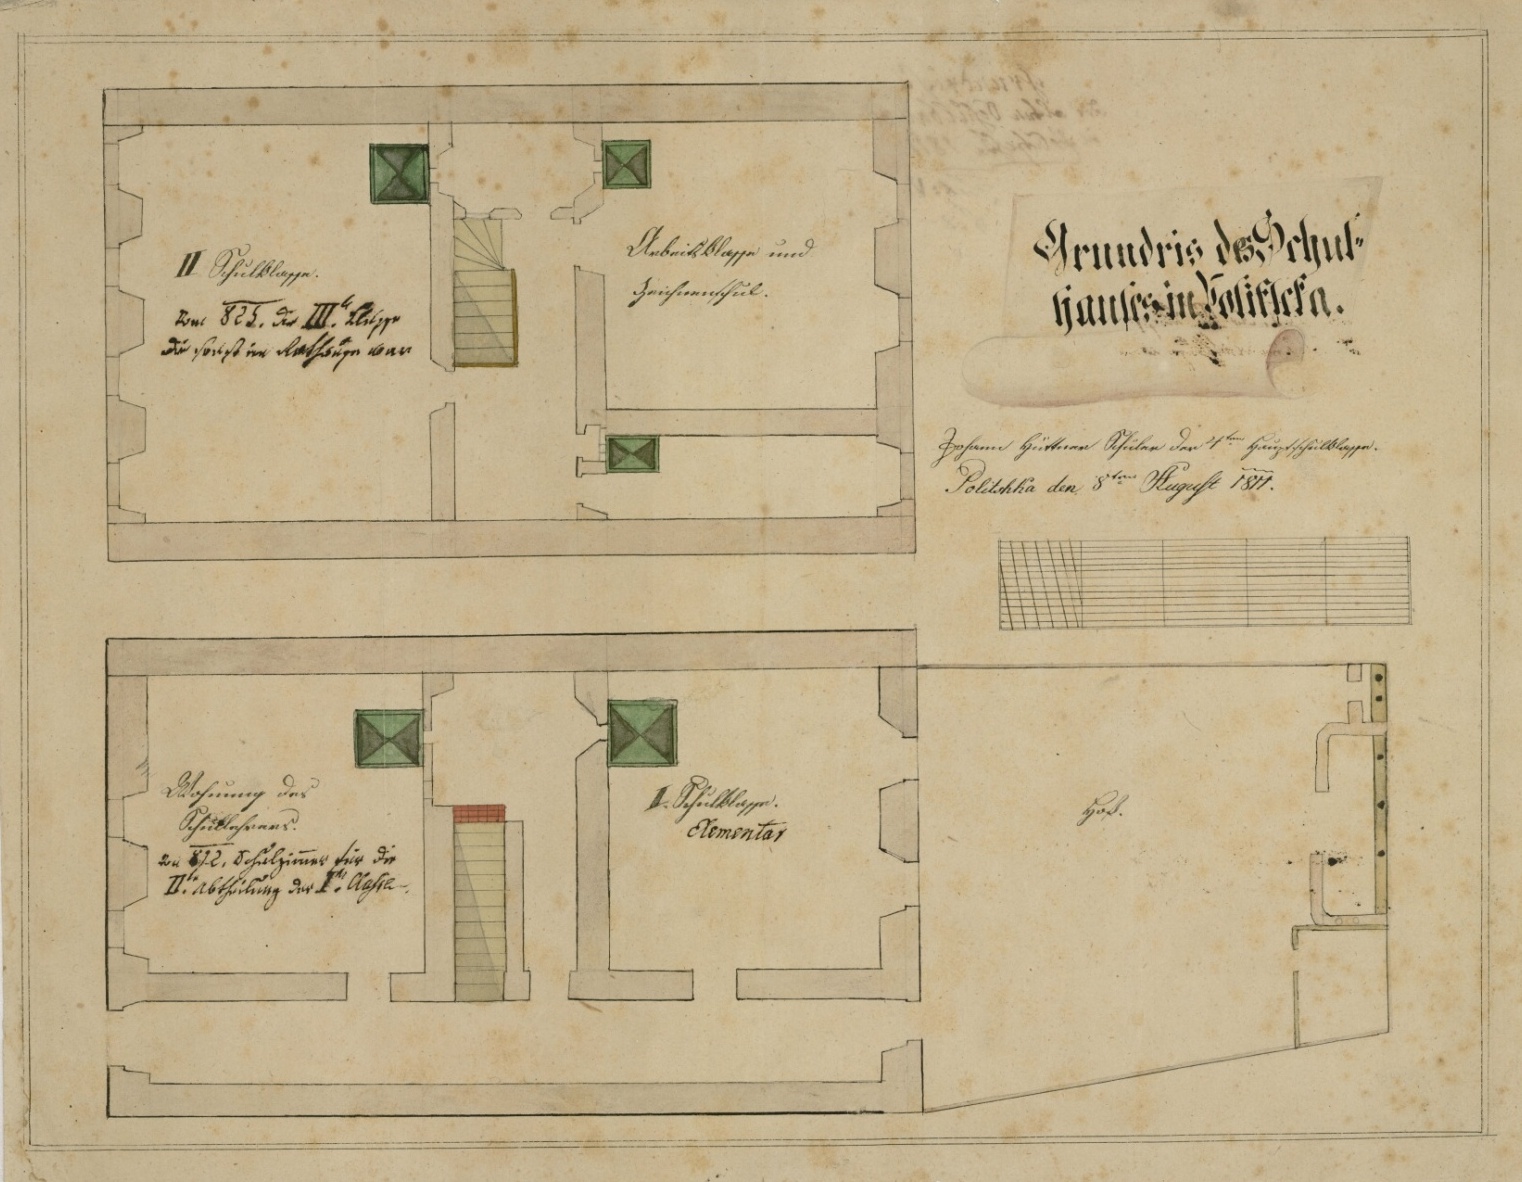 Grundris des Schul-
hauses in Politscka.
Johann Hüttner Schüler der 4ten Hauptschulklasse.
Politschka den 8ten August 1811.
II Schulklasse.
825. die III. Klasse
die sonst im Rathause war
Arbeitsklasse und
Zeichnenschul.
Wohnung des
Schullehrers.
812. Schulzimmer für die
IIte. Abtheilung der Iten. Classe.
I. Schulklasse.
Elementar
Hof.